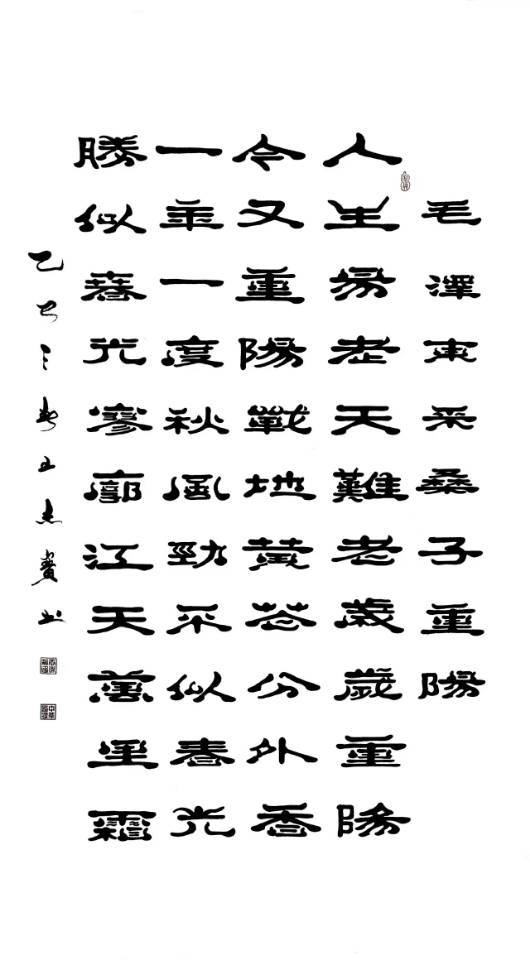 毛澤東采桑子重陽
人生易老天難老歲歲重陽
今又重陽戰地黃花分外香
一年一度秋風勁不似春光
勝似春光寥廓江天萬里霜
乙巳之春王志賓书